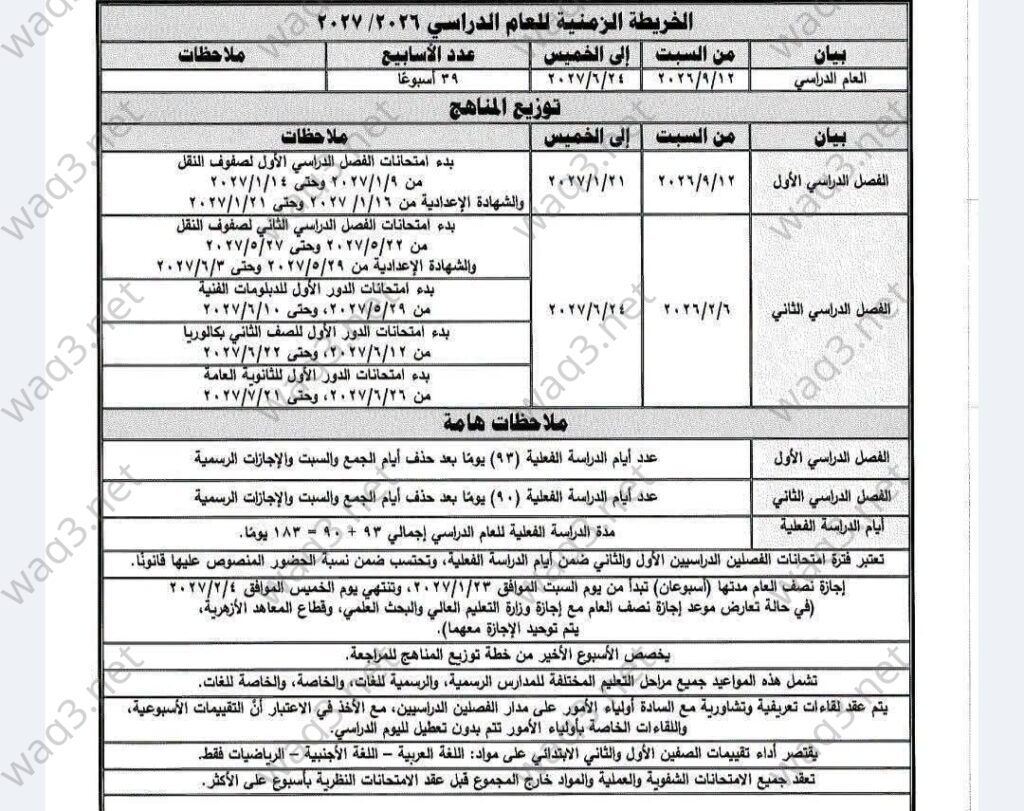 الخريطة الزمنية للعام الدراسي ٢٠٢٦/ ٢٠٢٧
بيان من السبت إلى الخميس عدد الأسابيع ملاحظات
العام الدراسي ٢٠٢٦/٩/١٢ ٢٠٢٧/٦/٢٤ ٣٩ أسبوعًا
توزيع المناهج
بيان من السبت إلى الخميس ملاحظات
الفصل الدراسي الأول ٢٠٢٦/٩/١٢ ٢٠٢٧/١/٢١
بدء امتحانات الفصل الدراسي الأول لصفوف النقل
من ٢٠٢٧/١/٩ وحتى ٢٠٢٧/١/١٤
والشهادة الإعدادية من ٢٠٢٧ /١/١٦ وحتى ٢٠٢٧/١/٢١
الفصل الدراسي الثاني ٢٠٢٦/٢/٦ ٢٠٢٧/٦/٢٤
بدء امتحانات الفصل الدراسي الثاني لصفوف النقل
من ٢٠٢٧/٥/٢٢ وحتى ٢٠٢٧/٥/٢٧
والشهادة الإعدادية من ٢٠٢٧/٥/٢٩ وحتى ٢٠٢٧/٦/٣
بدء امتحانات الدور الأول للدبلومات الفنية
من ٢٠٢٧/٥/٢٩، وحتى ٢٠٢٧/٦/١٠
بدء امتحانات الدور الأول للصف الثاني بكالوريا
من ٢٠٢٧/٦/١٢، وحتى ٢٠٢٧/٦/٢٢
بدء امتحانات الدور الأول للثانوية العامة
من ٢٠٢٧/٦/٢٦، وحتى ٢٠٢٧/٧/٢١
ملاحظات هامة
الفصل الدراسي الأول عدد أيام الدراسة الفعلية (٩٣) يومًا بعد حذف أيام الجمع والسبت والإجازات الرسمية
الفصل الدراسي الثاني عدد أيام الدراسة الفعلية (٩٠) يومًا بعد حذف أيام الجمع والسبت والإجازات الرسمية
أيام الدراسة الفعلية مدة الدراسة الفعلية للعام الدراسي إجمالي ٩٣ + ٩٠ = ١٨٣ يومًا.
تعتبر فترة امتحانات الفصلين الدراسيين الأول والثاني ضمن أيام الدراسة الفعلية، وتحتسب ضمن نسبة الحضور المنصوص عليها قانونًا.
إجازة نصف العام مدتها (أسبوعان) تبدأ من يوم السبت الموافق ٢٠٢٧/١/٢٣، وتنتهي يوم الخميس الموافق ٢٠٢٧/٢/٤
(في حالة تعارض موعد إجازة نصف العام مع إجازة وزارة التعليم العالي والبحث العلمي، وقطاع المعاهد الأزهرية،
يتم توحيد الإجازة معهما).
يخصص الأسبوع الأخير من خطة توزيع المناهج للمراجعة.
تشمل هذه المواعيد جميع مراحل التعليم المختلفة للمدارس الرسمية، والرسمية للغات، والخاصة، والخاصة للغات.
يتم عقد لقاءات تعريفية وتشاورية مع السادة أولياء الأمور على مدار الفصلين الدراسيين، مع الأخذ في الاعتبار أنَّ التقييمات الأسبوعية،
واللقاءات الخاصة بأولياء الأمور تتم بدون تعطيل لليوم الدراسي.
يقتصر أداء تقييمات الصفين الأول والثاني الابتدائي على مواد: اللغة العربية – اللغة الأجنبية – الرياضيات فقط.
تعقد جميع الامتحانات الشفوية والعملية والمواد خارج المجموع قبل عقد الامتحانات النظرية بأسبوع على الأكثر.
waq3.net